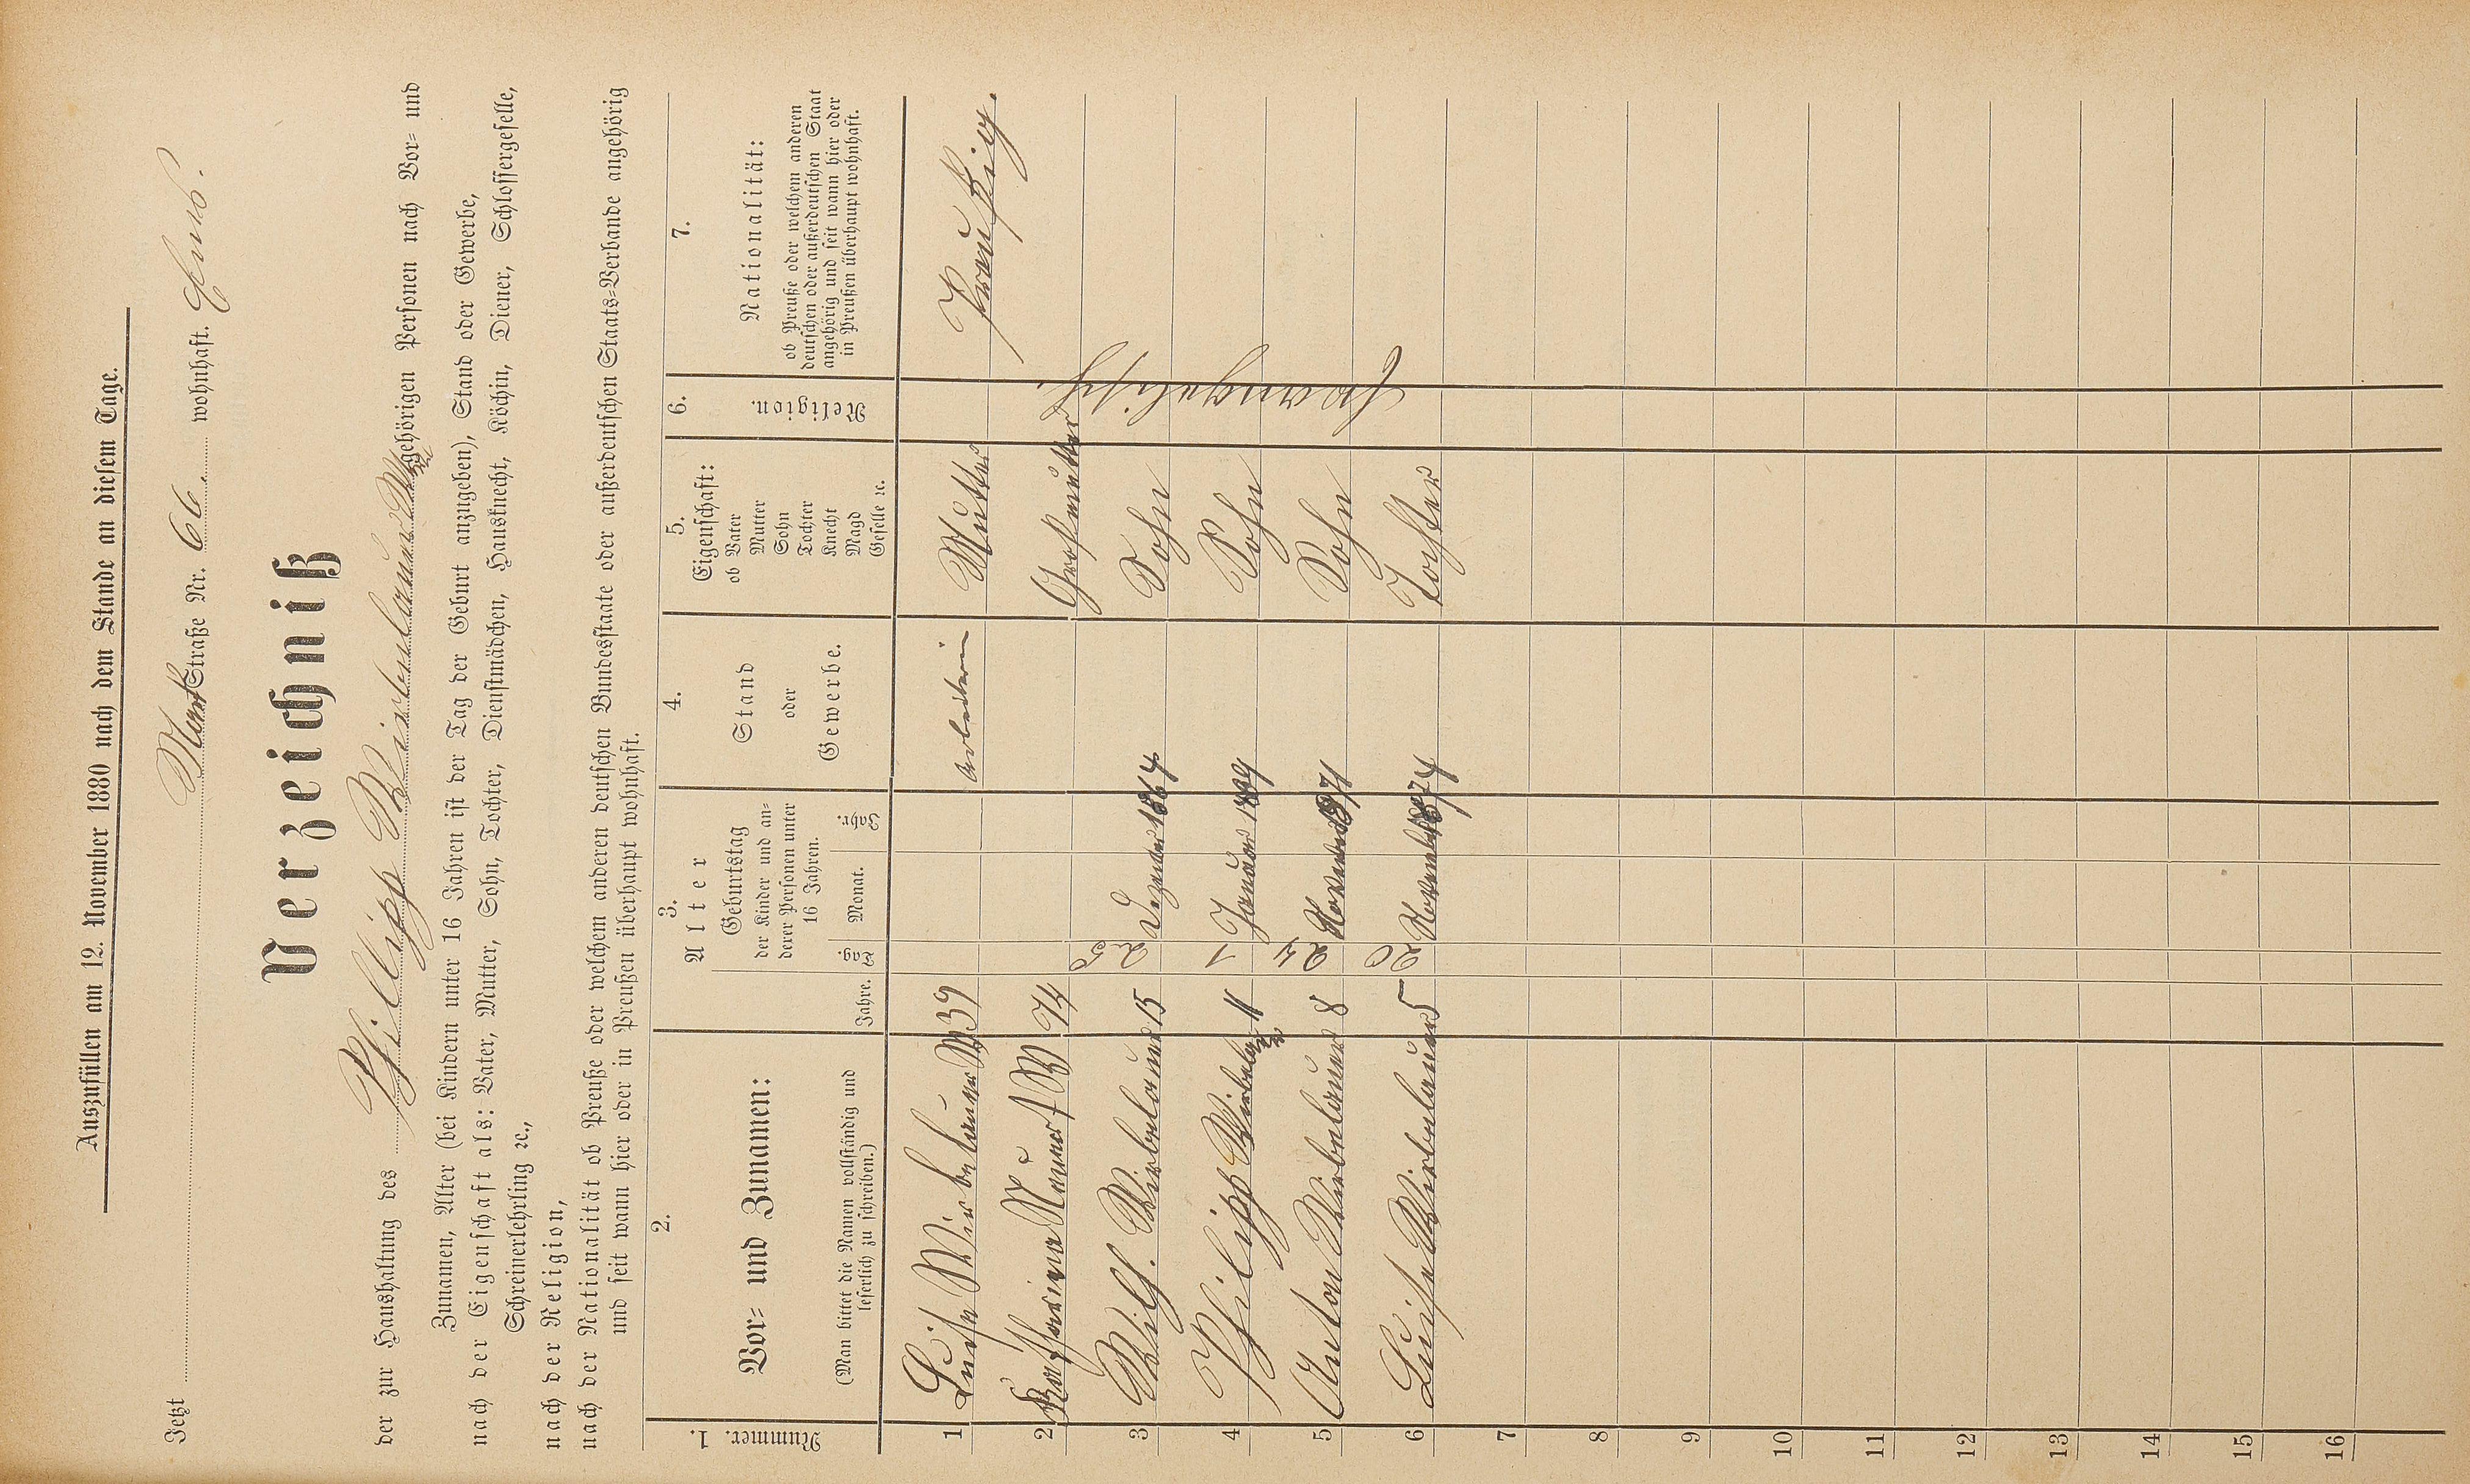 Auszufüllen am 12. November 1880 nach dem Stande an diesem Tage.
Jetzt Markt Straße Nr. 66. wohnhaft. Ems.
Verzeichniß
der zur Haushaltung des Phillipp Wirbelauer Ww gehörigen Personen nach Vor- und
Zunamen, Alter (bei Kindern unter 16 Jahren ist der Tag der Geburt anzugeben), Stand oder Gewerbe,
nach der Eigenschaft als: Vater, Mutter, Sohn, Tochter, Dienstmädchen, Hausknecht, Köchin, Diener, Schlossergeselle,
Schreinerlehrling ꝛc.,
nach der Religion,
nach der Nationalität ob Preuße oder welchem anderen deutschen Bundesstaate oder außerdeutschen Staats-Verbande angehörig
und seit wann hier oder in Preußen überhaupt wohnhaft.
1.
Nummer.
2.
Vor- und Zunamen:
(Man bittet die Namen vollständig und
leserlich zu schreiben.)
3.
Alter
Jahre.
Geburtstag
der Kinder und an-
derer Personen unter
16 Jahren.
Tag.
Monat.
Jahr.
4.
Stand
oder
Gewerbe.
5.
Eigenschaft:
ob Vater
Mutter
Sohn
Tochter
Knecht
Magd
Geselle ꝛc.
6.
Religion.
7.
Nationalität:
ob Preuße oder welchem anderen
deutschen oder außerdeutschen Staat
angehörig und seit wann hier oder
in Preußen überhaupt wohnhaft.
1 Luise Wirbelauer W 39 Arbeiterin Mutter Preußig.
2 Katharina W 74 Großmutter
3 Wilh. Wirbelauer 15 25 Dezember 1864 Sohn
4 Philipp Wirbelauer 11 1 Januar 1869 Sohn
5 Anton Wirbelauer 8 24 November 1871 Sohn
6 Luise Wirbelauer 5 20 November 1874 Tochter
Evangelisch.
7
8
9
10
11
12
13
14
15
16